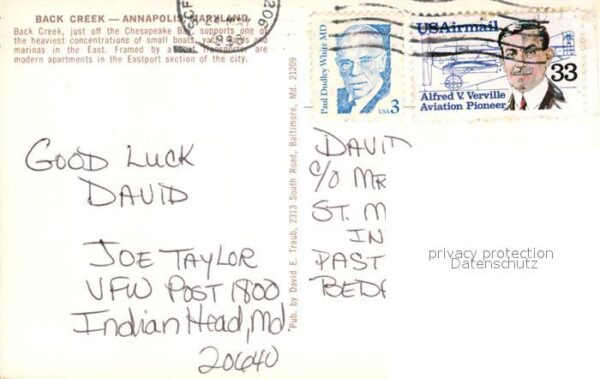 BACK CREEK — ANNAPOLIS, MARYLAND
Back Creek, just off the Chesapeake Bay, supports one of
the heaviest concentrations of small boats, yacht yards and
marinas in the East. Framed by a boat transporter are
modern apartments in the Eastport section of the city.
206
Paul Dudley White MD
USA 3
USAirmail
33
Alfred V. Verville
Aviation Pioneer
GOOD LUCK
DAVID
JOE TAYLOR
VFW POST 1800
Indian Head, Md.
20640
Pub. by David E. Traub, 2313 South Road, Baltimore, Md. 21209
DAVID
C/O MR
ST. M
IN
PAST
BEDA
privacy protection
Datenschutz